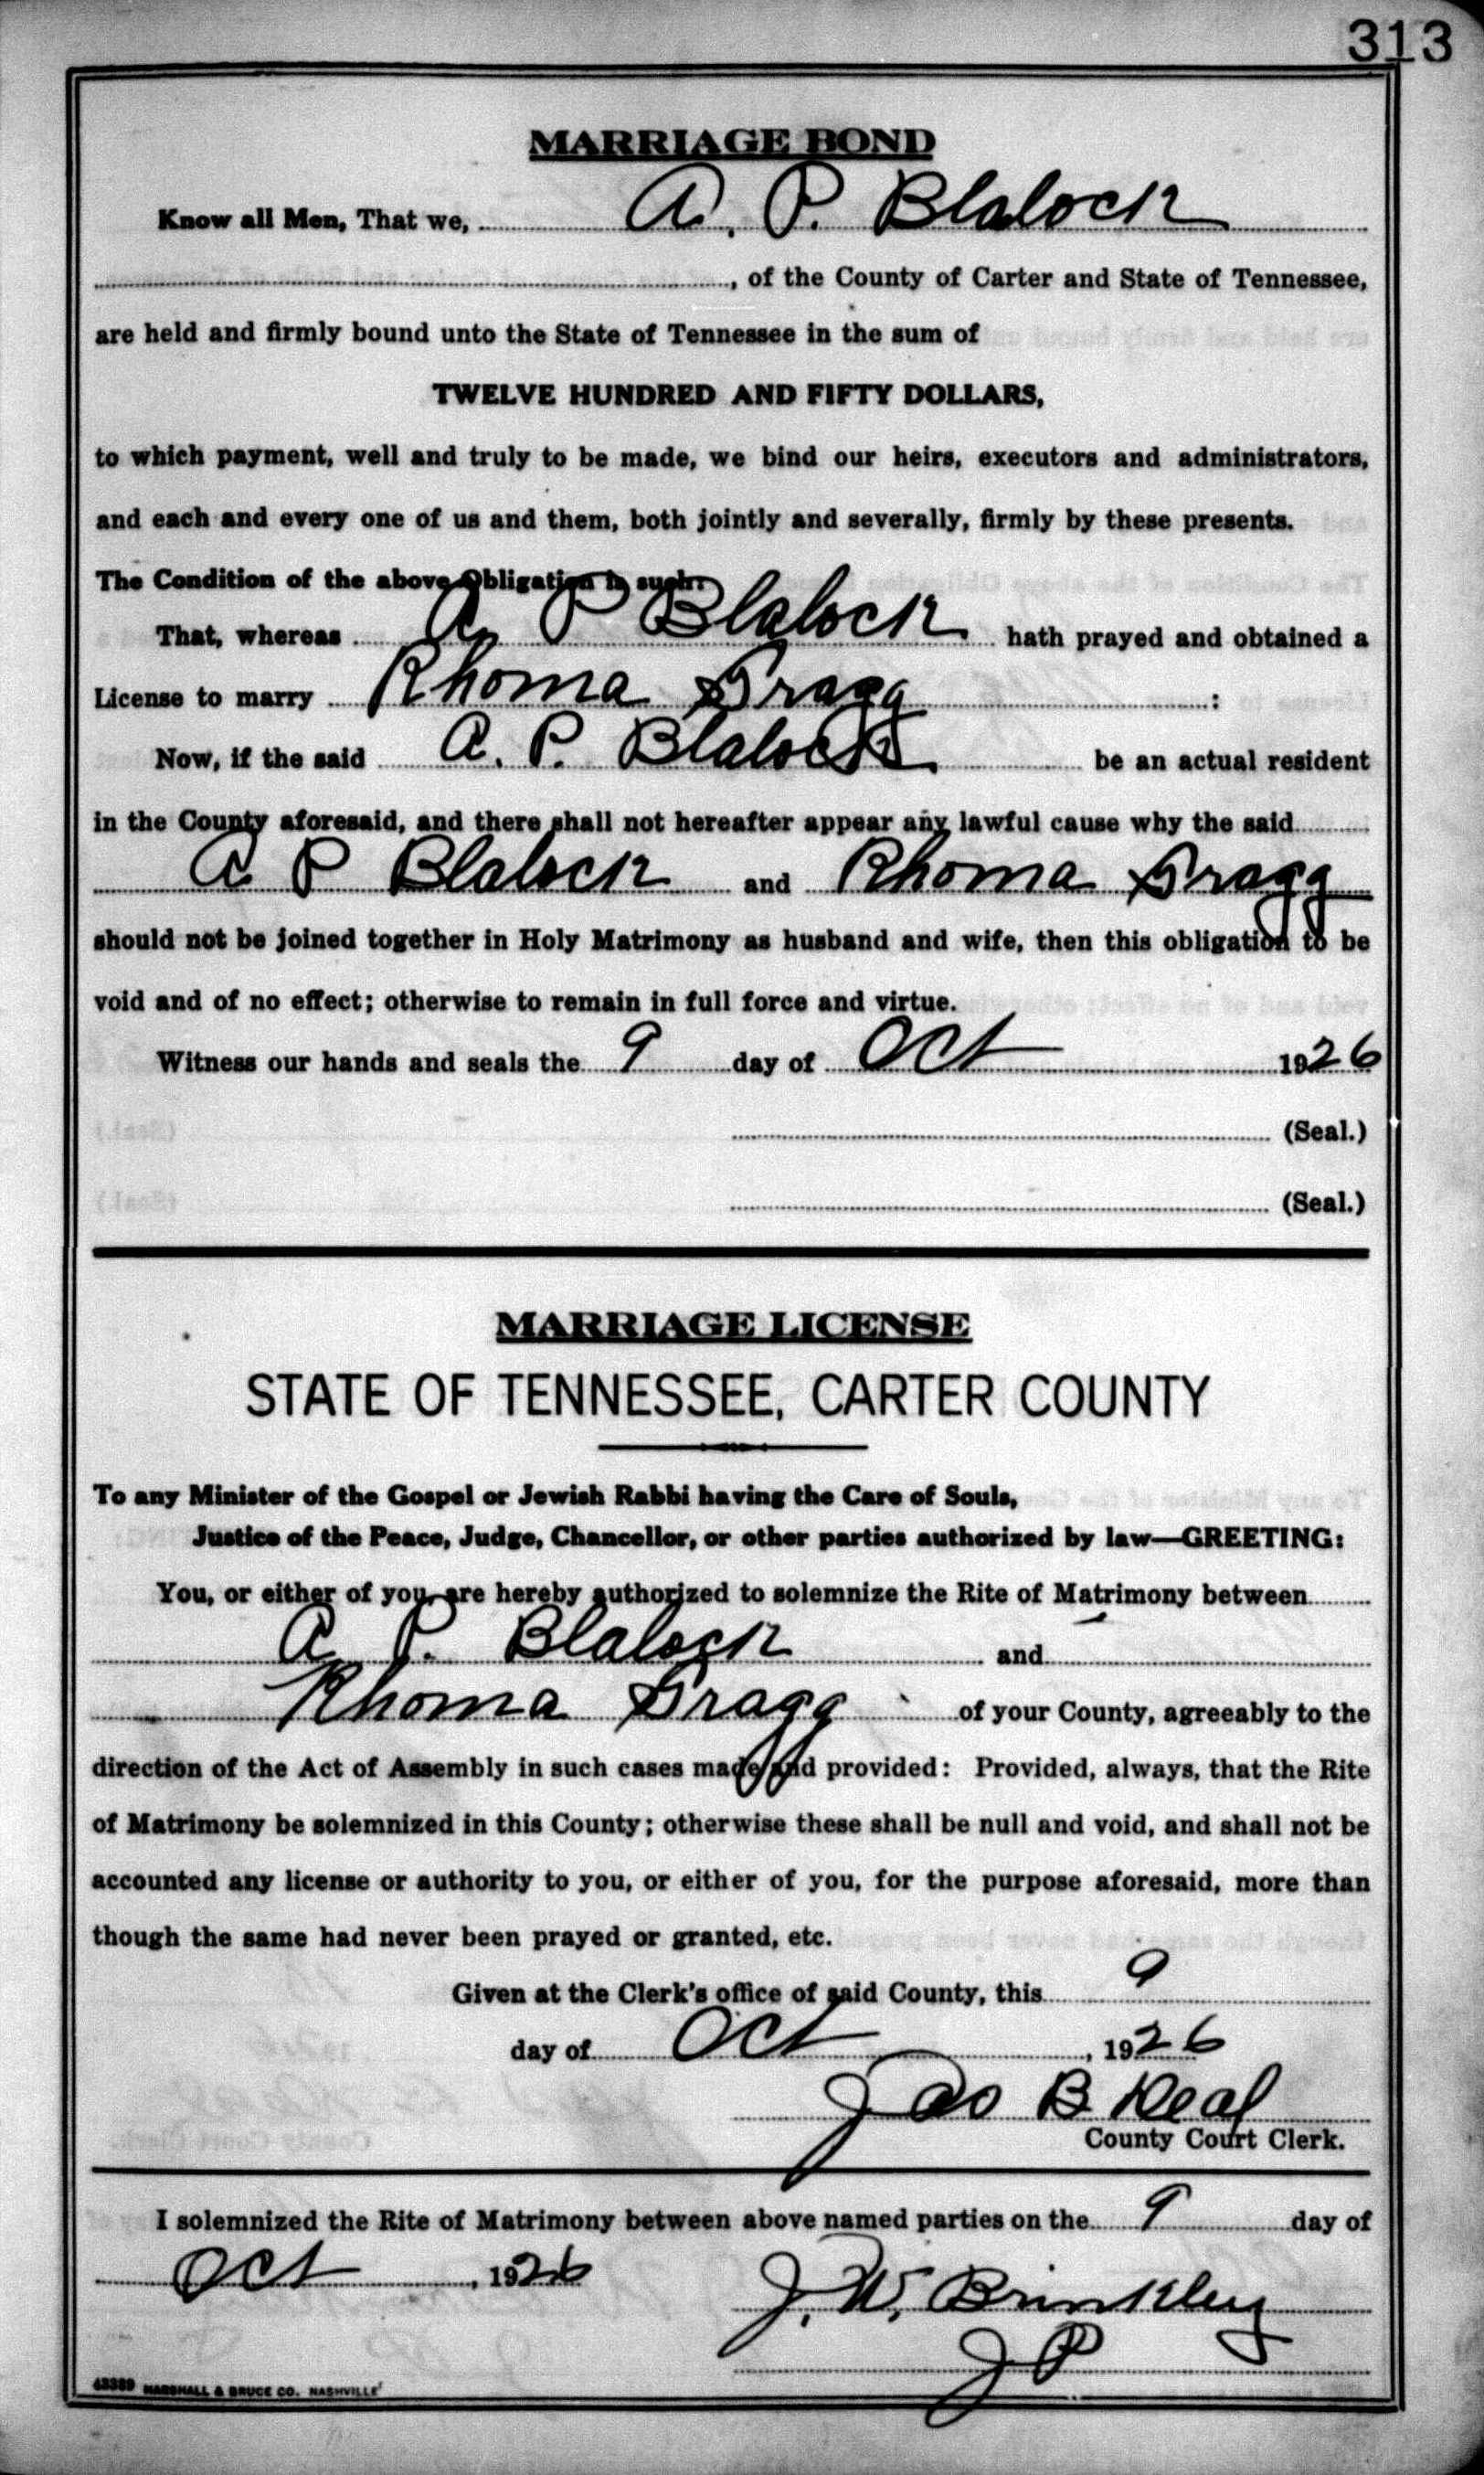 313
MARRIAGE BOND
Know all Men, That we, A. P. Blalock
, of the County of Carter and State of Tennessee,
are held and firmly bound unto the State of Tennessee in the sum of
TWELVE HUNDRED AND FIFTY DOLLARS,
to which payment, well and truly to be made, we bind our heirs, executors and administrators,
and each and every one of us and them, both jointly and severally, firmly by these presents.
The Condition of the above Obligation is such:
That, whereas A. P Blalock hath prayed and obtained a
License to marry Rhoma Gragg :
Now, if the said A. P. Blalock be an actual resident
in the County aforesaid, and there shall not hereafter appear any lawful cause why the said
A P Blalock and Rhoma Gragg
should not be joined together in Holy Matrimony as husband and wife, then this obligation to be
void and of no effect; otherwise to remain in full force and virtue.
Witness our hands and seals the 9 day of Oct 1926
(Seal.)
(Seal.)
MARRIAGE LICENSE
STATE OF TENNESSEE, CARTER COUNTY
To any Minister of the Gospel or Jewish Rabbi having the Care of Souls,
Justice of the Peace, Judge, Chancellor, or other parties authorized by law—GREETING:
You, or either of you, are hereby authorized to solemnize the Rite of Matrimony between
A P. Blalock and
Rhoma Gragg of your County, agreeably to the
direction of the Act of Assembly in such cases made and provided: Provided, always, that the Rite
of Matrimony be solemnized in this County; otherwise these shall be null and void, and shall not be
accounted any license or authority to you, or either of you, for the purpose aforesaid, more than
though the same had never been prayed or granted, etc.
Given at the Clerk's office of said County, this 9
day of Oct, 1926
Jas B Deal
County Court Clerk.
I solemnized the Rite of Matrimony between above named parties on the 9 day of
Oct, 1926 J. W. Brinkley
J P
43389 MARSHALL & BRUCE CO. NASHVILLE